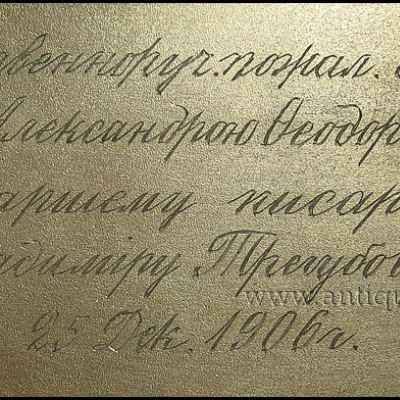 венноруч. пожал.
Александрою Ѳеодор
аршему писар
адиміру Трегубов
www.antiqu
25 Дек. 1906 г.